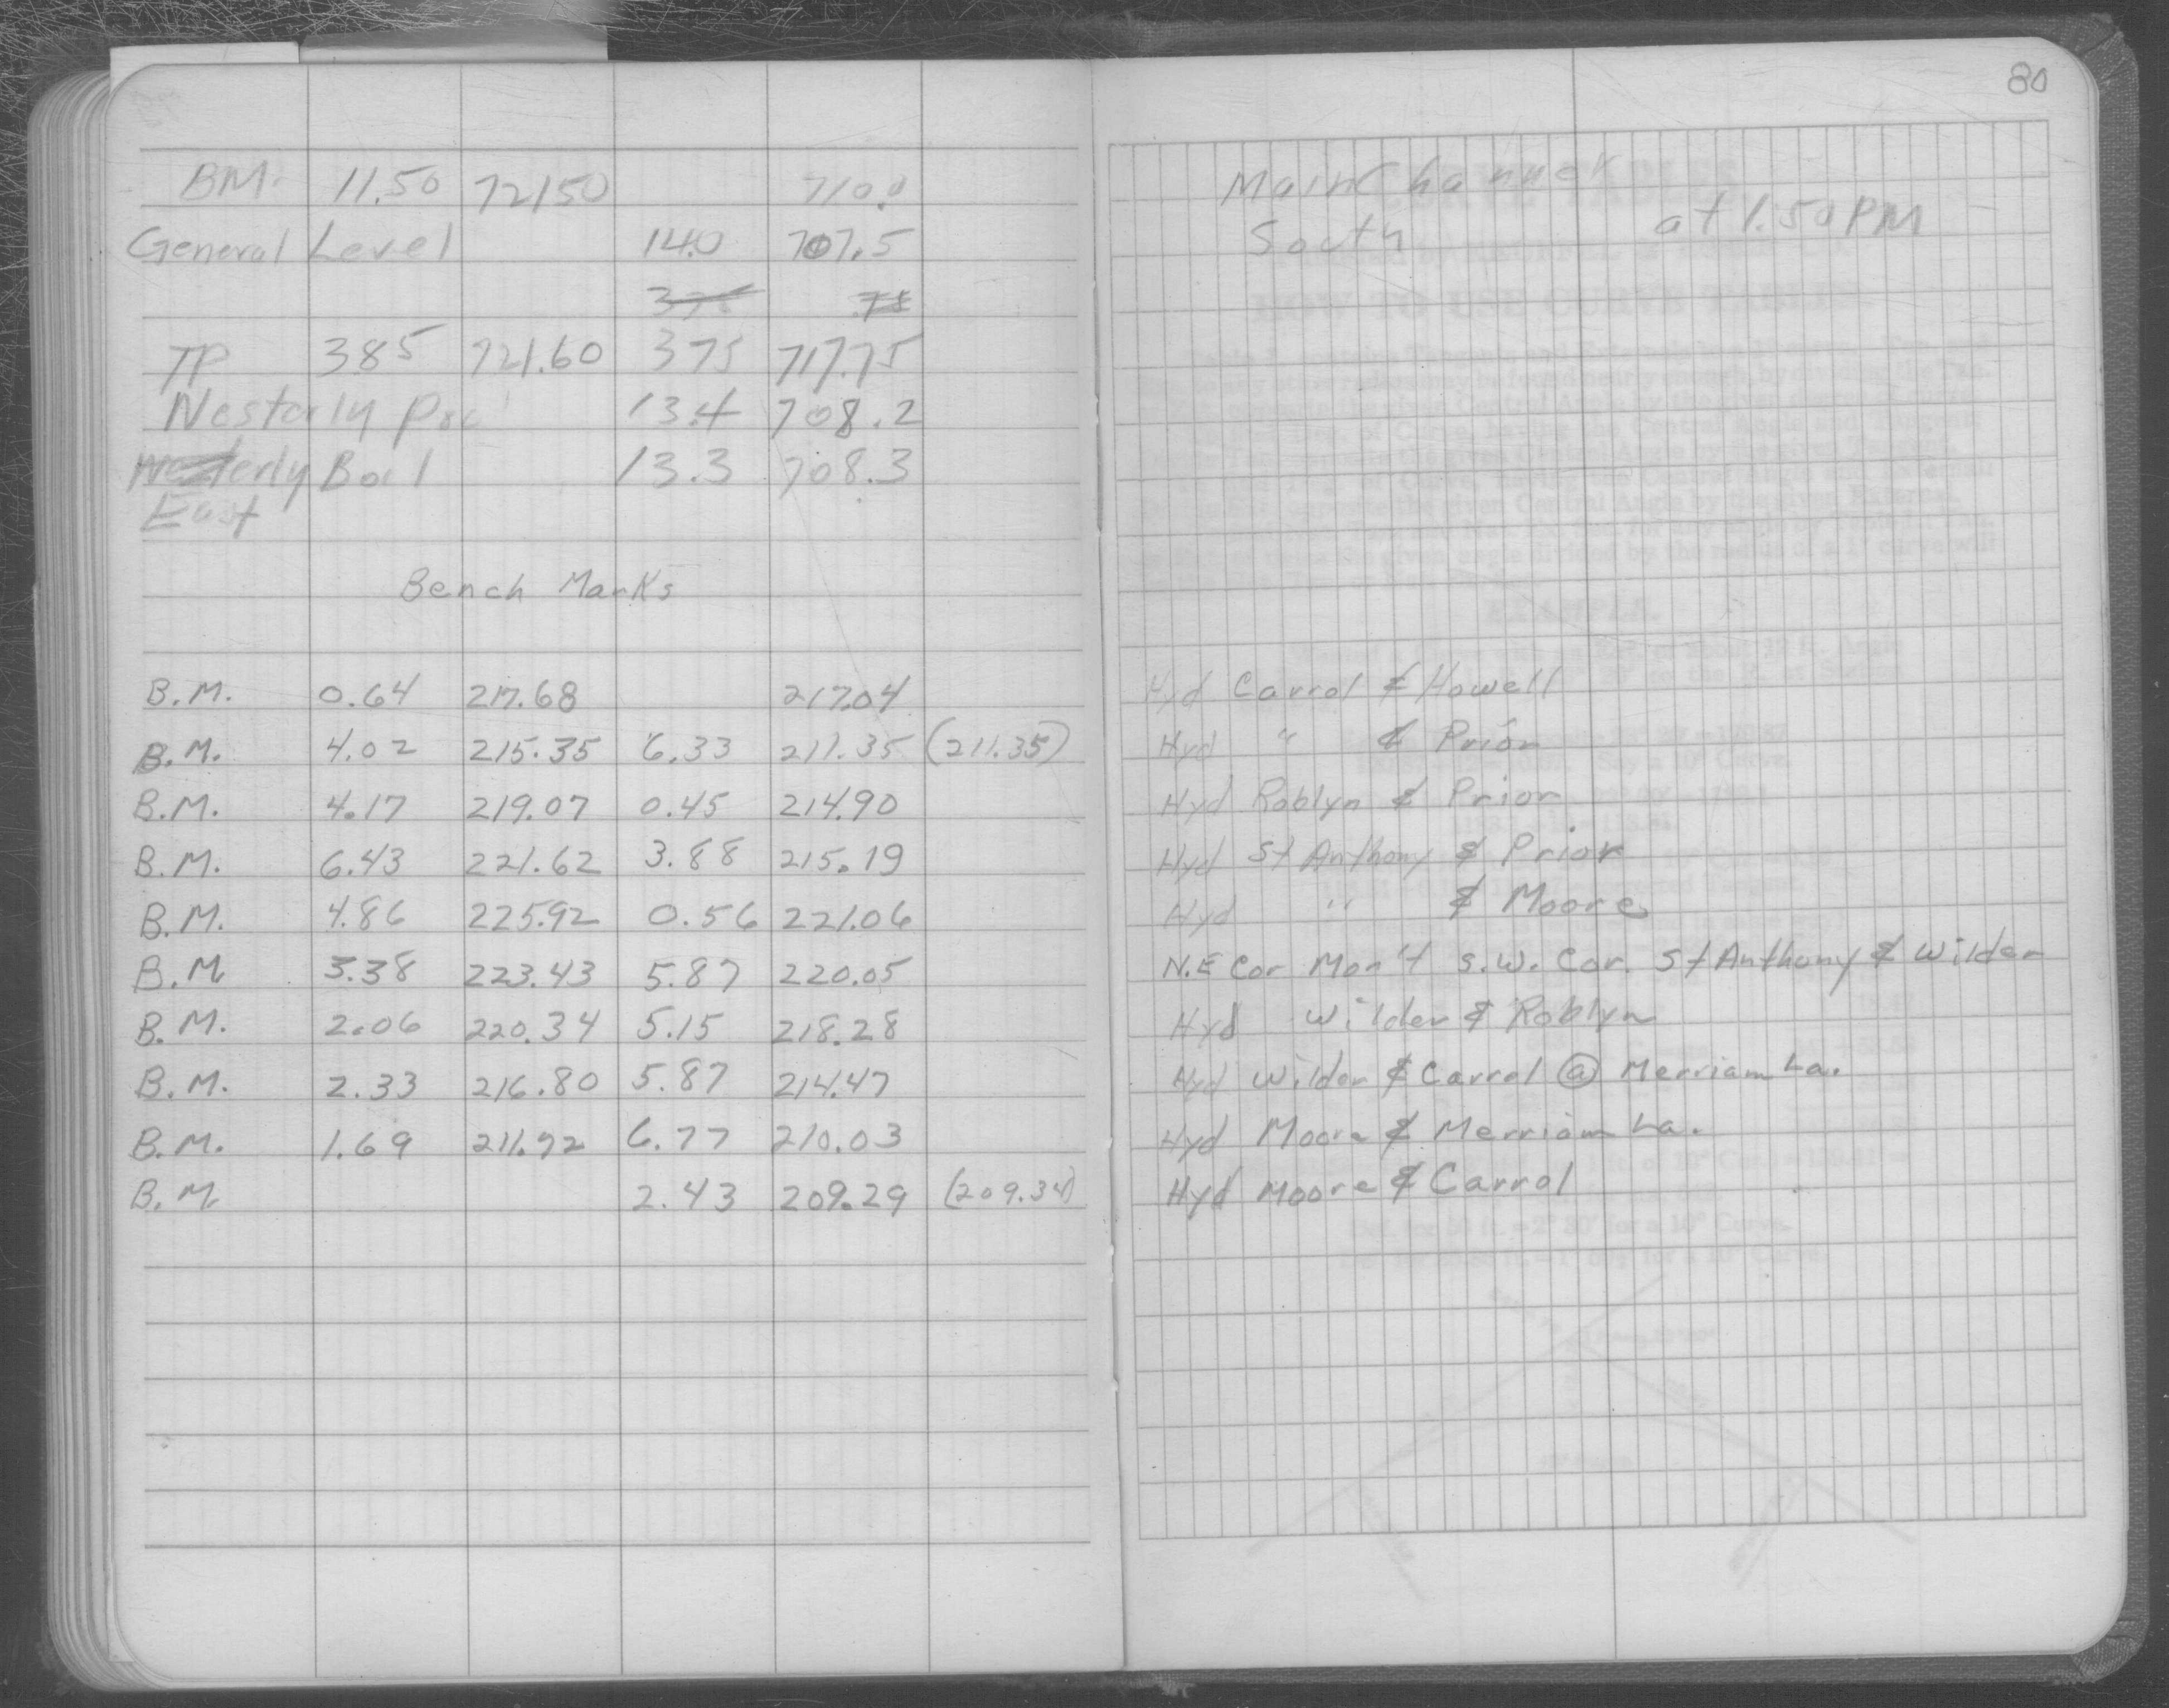 80
BM. 11.50 72150 710.0 Main Channel
General Level 14.0 707.5 South at 1.50 PM
TP 385 721.60 375 717.75
13.4 708.2
Westerly Boil 13.3 708.3
East
Bench Marks
B.M. 0.64 217.68 217.04 Hyd Carrol & Howell
B.M. 4.02 215.35 6.33 211.35 (211.35) Hyd " & Prior
B.M. 4.17 219.07 0.45 214.90 Hyd Roblyn & Prior
B.M. 6.43 221.62 3.88 215.19 Hyd St Anthony & Prior
B.M. 4.86 225.92 0.56 221.06 Hyd " & Moore
B.M 3.38 223.43 5.87 220.05 N.E Cor Mon't S.W. Cor. St Anthony & Wilder
B.M. 2.06 220.34 5.15 218.28 Hyd Wilder & Roblyn
B.M. 2.33 216.80 5.87 214.47 Hyd Wilder & Carrol @ Merriam La.
B.M. 1.69 211.72 6.77 210.03 Hyd Moore & Merriam La.
B.M. 2.43 209.29 (209.34) Hyd Moore & Carrol